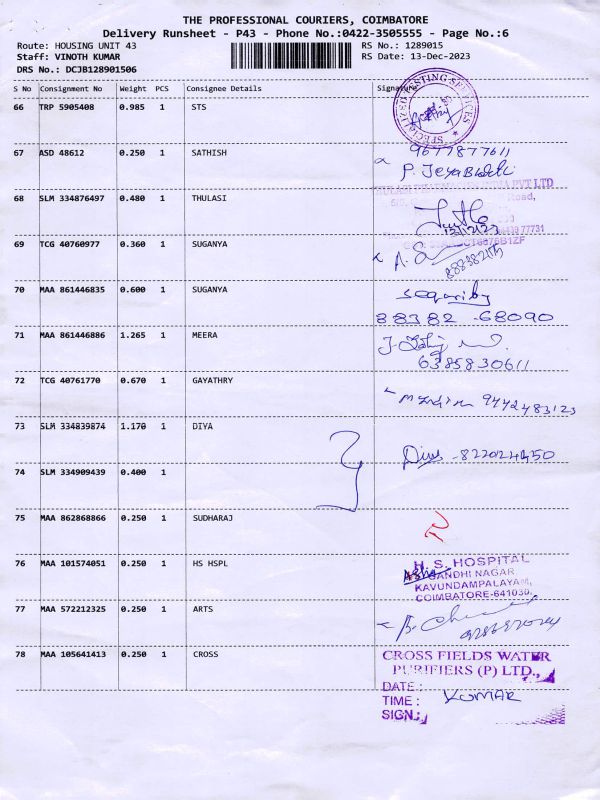 THE PROFESSIONAL COURIERS, COIMBATORE
Delivery Runsheet - P43 - Phone No.:0422-3505555 - Page No.:6
Route: HOUSING UNIT 43 RS No.: 1289015
Staff: VINOTH KUMAR RS Date: 13-Dec-2023
DRS No.: DCJB128901506
S No Consignment No Weight PCS Consignee Details Signature
66 TRP 5905408 0.985 1 STS
SPECIALIZED TESTING SERVICES
67 ASD 48612 0.250 1 SATHISH 9677877611
P. Jeya
PVT LTD
68 SLM 334876497 0.480 1 THULASI
Road,
13/12/23
77731
69 TCG 40760977 0.360 1 SUGANYA
70 MAA 861446835 0.600 1 SUGANYA
88382 -68090
71 MAA 861446886 1.265 1 MEERA
6385830611
72 TCG 40761770 0.670 1 GAYATHRY 9442483123
73 SLM 334839874 1.170 1 DIYA
74 SLM 334909439 0.400 1
75 MAA 862868866 0.250 1 SUDHARAJ
76 MAA 101574051 0.250 1 HS HSPL H. S. HOSPITAL
GANDHI NAGAR
KAVUNDAMPALAYAM,
COIMBATORE-641030.
77 MAA 572212325 0.250 1 ARTS
78 MAA 105641413 0.250 1 CROSS CROSS FIELDS WATER
PURIFIERS (P) LTD.,
DATE :
TIME : KUMAR
SIGN.: